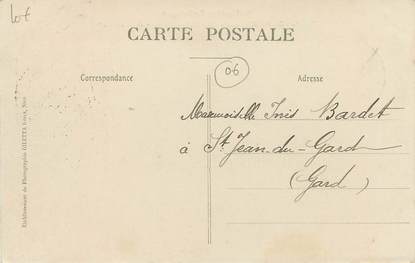 lot
CARTE POSTALE
06
Correspondance
Adresse
Mademoiselle Inès Bardet
à St Jean-du-Gard
(Gard)
Etablissement de Photographie GILETTA Frères, Nice